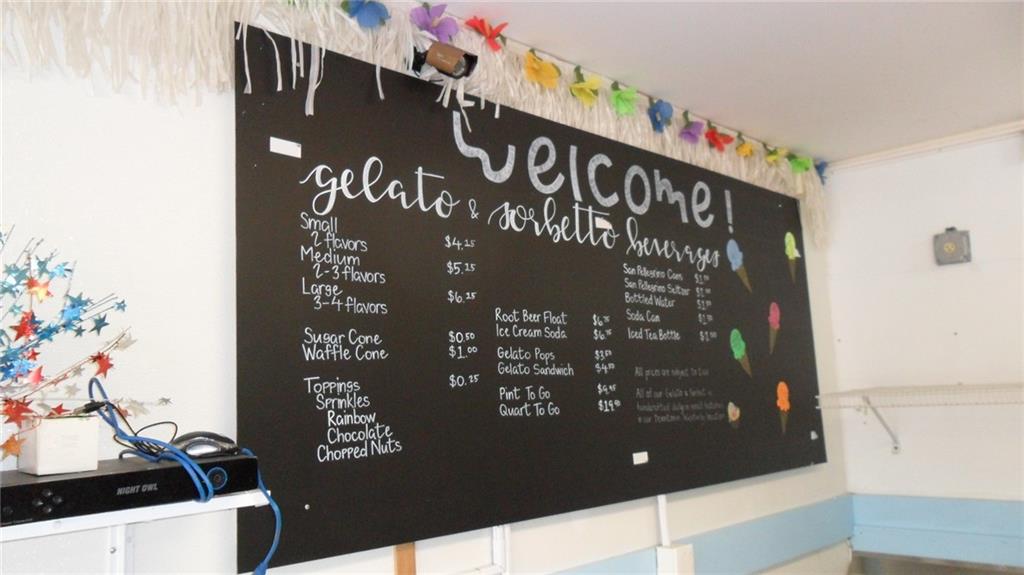 Welcome!
gelato & sorbetto
Small
2 flavors $4.25
Medium
2-3 flavors $5.25
Large
3-4 flavors $6.25
Sugar Cone $0.50
Waffle Cone $1.00
Toppings $0.25
Sprinkles
Rainbow
Chocolate
Chopped Nuts
Root Beer Float $6.75
Ice Cream Soda $6.75
Gelato Pops $3.50
Gelato Sandwich
Pint To Go
Quart To Go
beverages
San Pellegrino Cans
San Pellegrino Seltzer
Bottled Water
Soda Can
Iced Tea Bottle
All prices are subject to
All of our Gelato & Sorbet is
handcrafted daily in small batches
in our Downtown location
NIGHT OWL